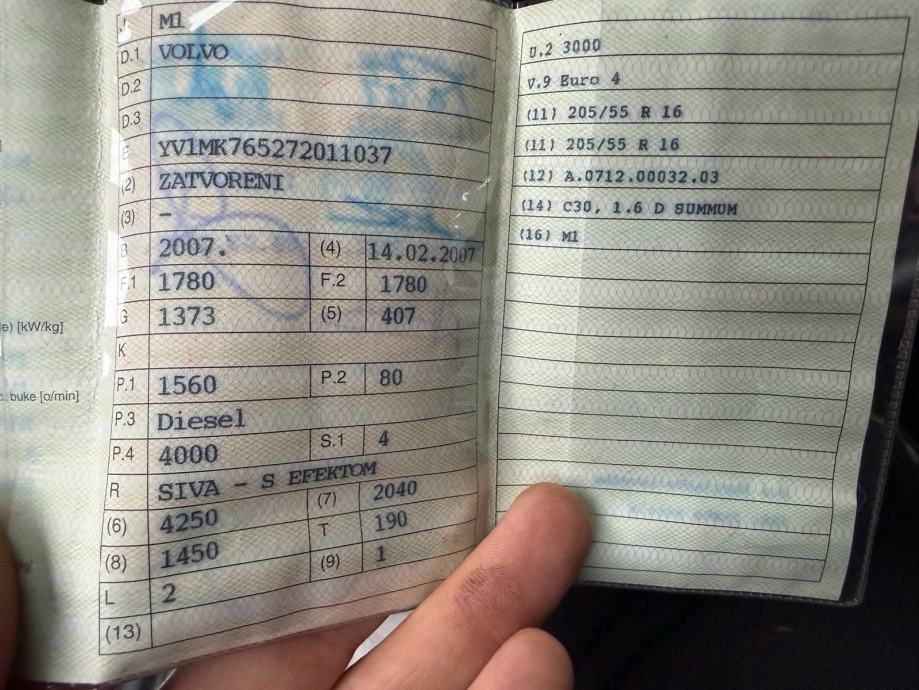 J M1
D.1 VOLVO
D.2
D.3
E YV1MK765272011037
(2) ZATVORENI
(3) -
B 2007. (4) 14.02.2007
F.1 1780 F.2 1780
G 1373 (5) 407
K
P.1 1560 P.2 80
P.3 Diesel
P.4 4000 S.1 4
R SIVA - S EFEKTOM
(6) 4250 (7) 2040
(8) 1450 T 190
L 2 (9) 1
(13)
e) [kW/kg]
buke [o/min]
U.2 3000
V.9 Euro 4
(11) 205/55 R 16
(11) 205/55 R 16
(12) A.0712.00032.03
(14) C30, 1.6 D SUMMUM
(16) M1